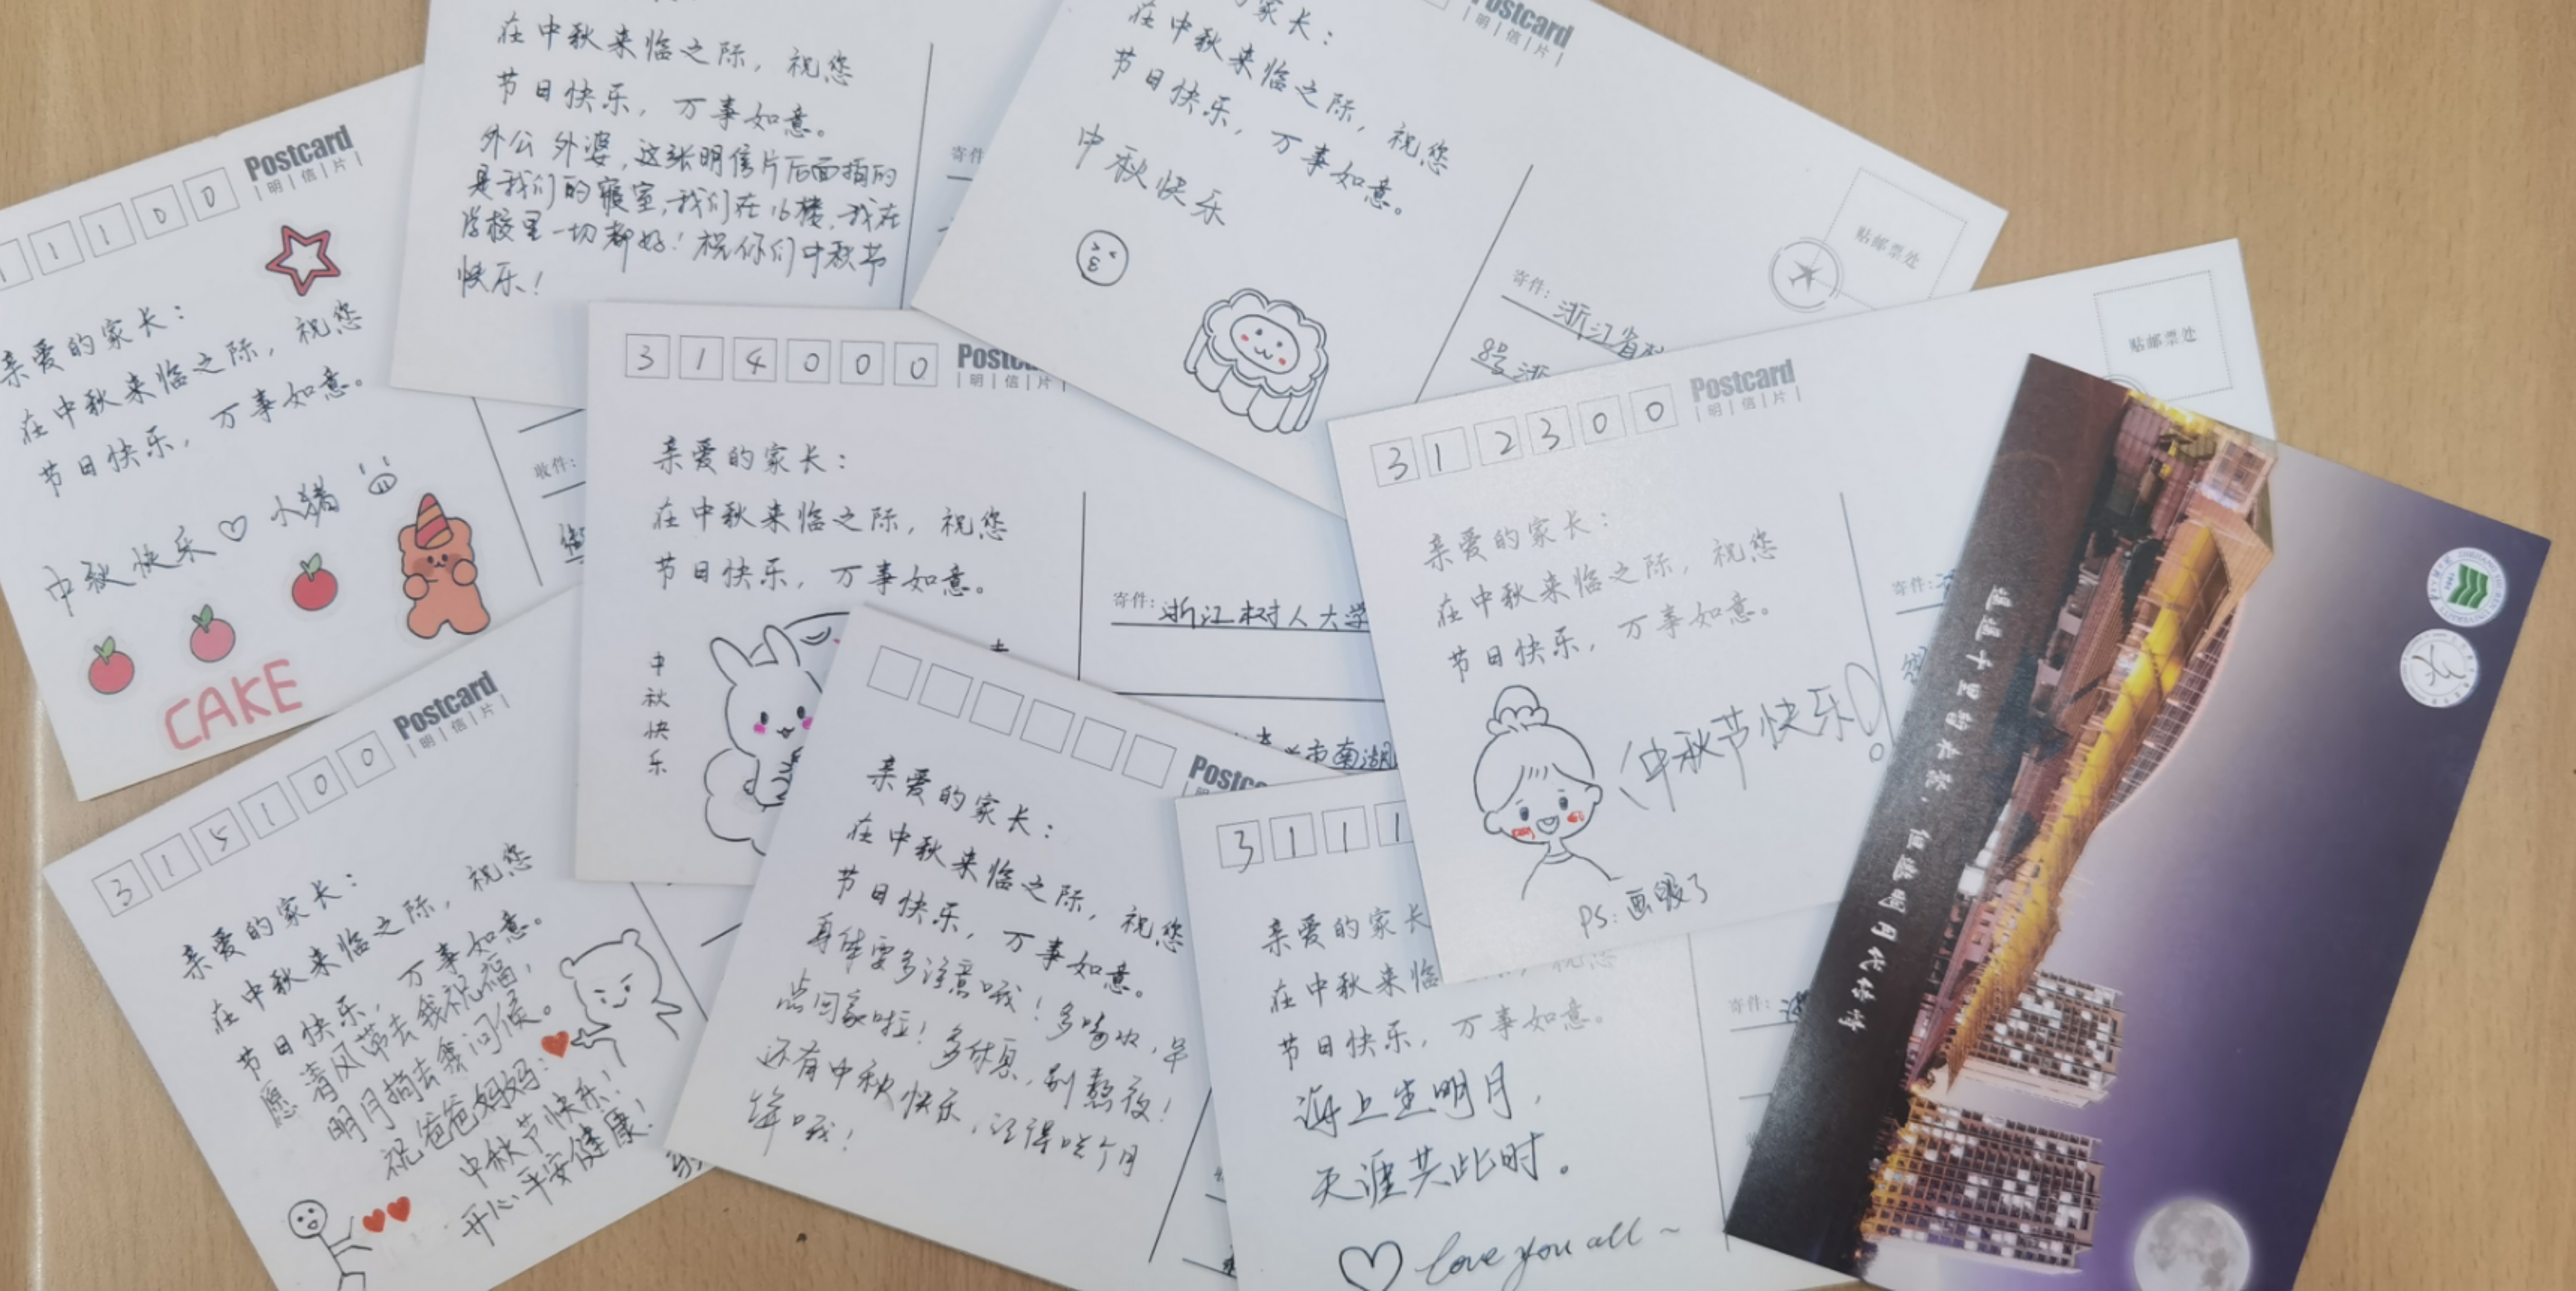 Postcard
明信片
1 1 0 0
亲爱的家长：
在中秋来临之际，祝您
节日快乐，万事如意。
中秋快乐♡ 小猪
CAKE
收件：
在中秋来临之际，祝您
节日快乐，万事如意。
外公 外婆，这张明信片后面描的
是我们的寝室，我们在16楼，我在
学校里一切都好！祝你们中秋节
快乐！
寄件
家长：
在中秋来临之际，祝您
节日快乐，万事如意。
中秋快乐
Postcard
明信片
贴邮票处
寄件：浙江省
8号浙
3 1 4 0 0 0
Postca
明信片
亲爱的家长：
在中秋来临之际，祝您
节日快乐，万事如意。
中秋快乐
寄件：浙江树人大学
市南湖
3 1 2 3 0 0
Postcard
明信片
贴邮票处
亲爱的家长：
在中秋来临之际，祝您
节日快乐，万事如意。
中秋节快乐！
PS：画毁了
寄件：
3 1 5 1 0 0
Postcard
明信片
亲爱的家长：
在中秋来临之际，祝您
节日快乐，万事如意。
愿清风带去我祝福，
明月捎去我问候。
祝爸爸妈妈：
中秋节快乐！
开心平安健康！
Postc
亲爱的家长：
在中秋来临之际，祝您
节日快乐，万事如意。
身体要多注意哦！多喝水，早
点回家啦！多休息，别熬夜！
还有中秋快乐，记得吃个月
饼哦！
3 1 1 1
亲爱的家长
在中秋来临 祝您
节日快乐，万事如意。
海上生明月，
天涯共此时。
♡ love you all ~
寄件：
遥遥千里